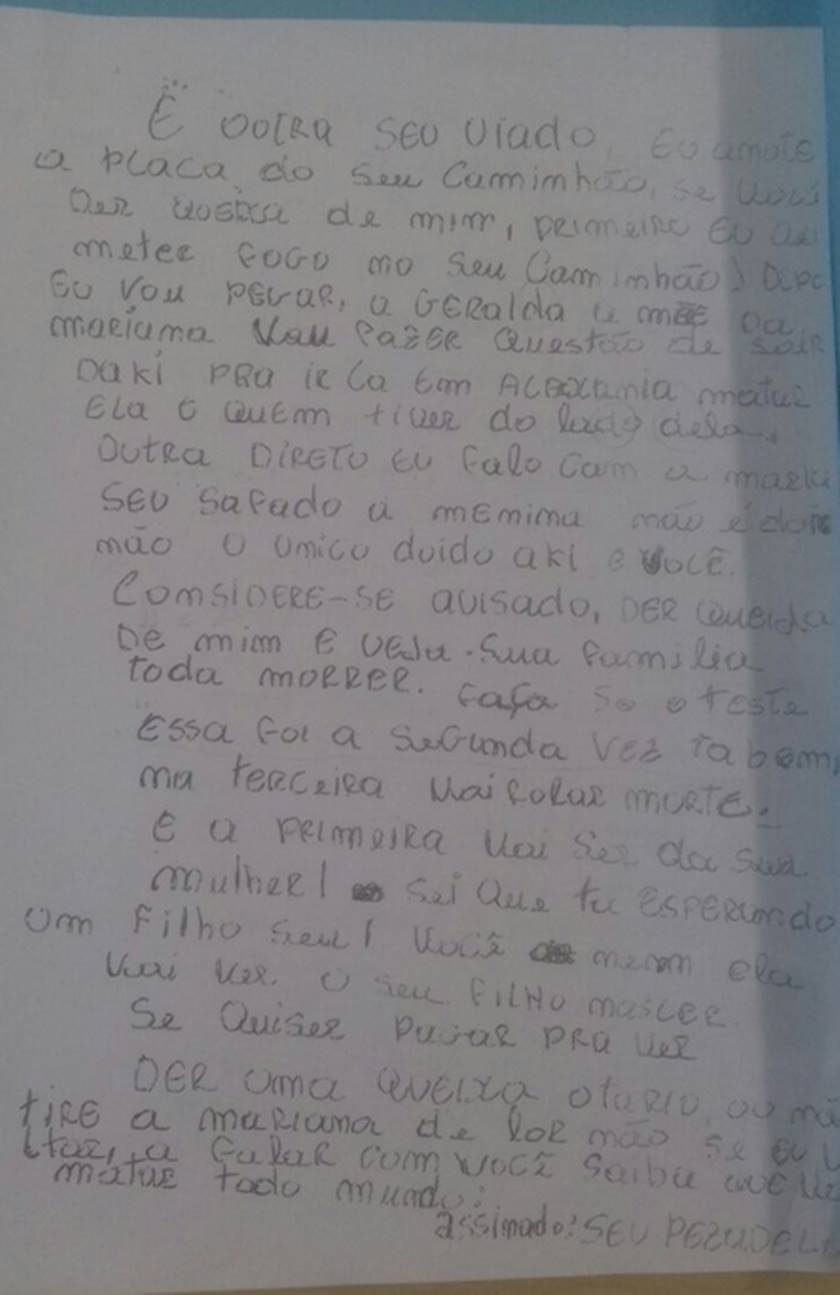 É OUTRA SEU Viado, EU amote
a placa do seu Caminhão, se você
Der queixa de mim, primeiro EU
meter FOGO no seu Caminhão)
EU vou PEGAR, a GERALDA a mãe Da
mariana Vou FAZER Questão de sair
Daki PRA ir La Em matar
Ela E quem tiver do lado dela.
OutRA DIRETO EU Falo com a
SEU Safado a menina não é
não O Unico doido aki e você.
CONSIDERE-SE avisado, DER queicha
De mim E veja Sua família
toda morrer. Faça so o teste
Essa Foi a segunda vez Ta bom,
na terceira Vai Rolar morte.
E a primeira Vai Ser da sua
mulher! Sei Que ta esperando
um Filho seu! Você nem ela
Vai ver o seu FILHO nascer
Se Quiser pagar PRA ver
DER uma queixa otario, ou
tire a mariana de lor não se EU
a Falar com você saiba que
matar todo mundo:
assinado: SEU